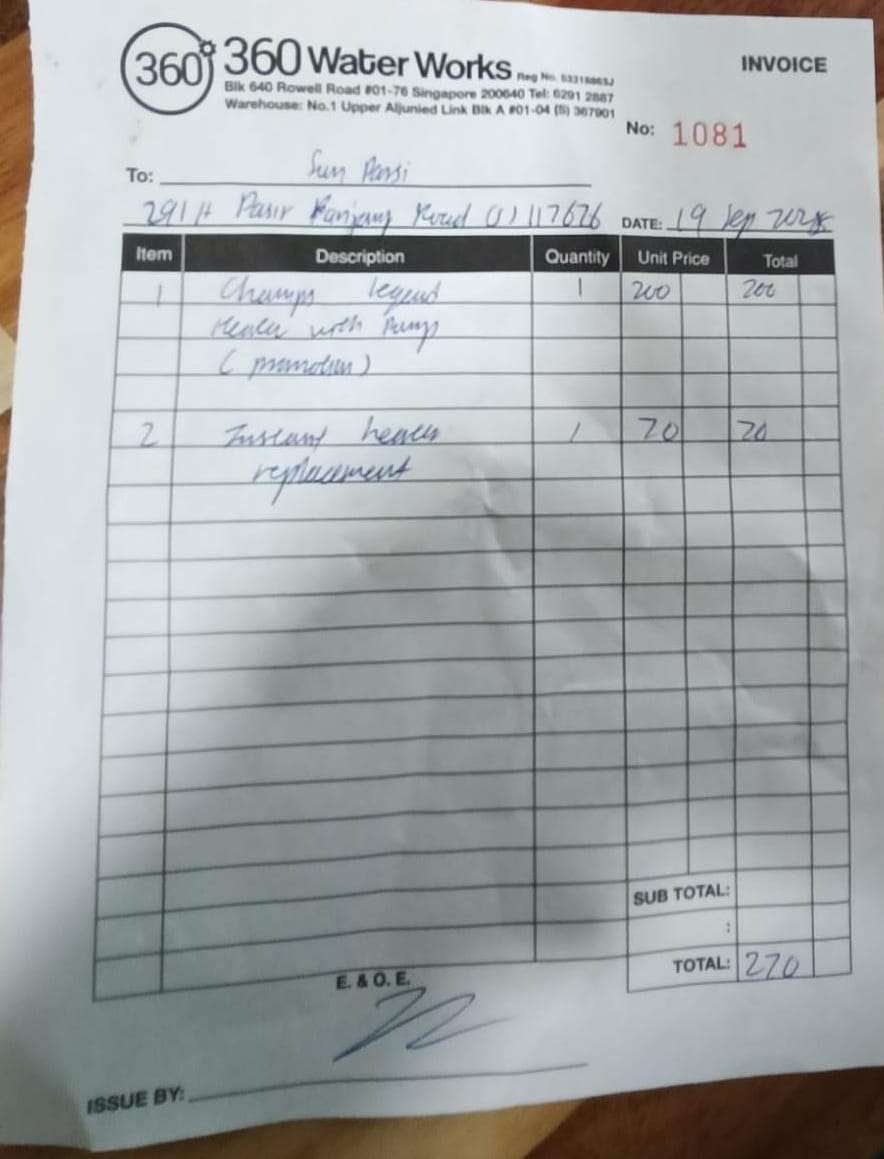 360°
360 Water Works Reg No. 53318863J
Blk 640 Rowell Road #01-76 Singapore 200640 Tel: 6291 2887
Warehouse: No.1 Upper Aljunied Link Blk A #01-04 (S) 367901
INVOICE
No: 1081
To:
291H Pasir Panjang Road (S) 117626 DATE: 19 Sep
Item Description Quantity Unit Price Total
1 Champs legend 1 200 200
Heater with Pump
(promotion)
2 Instant heater 1 70 70
replacement
SUB TOTAL:
:
TOTAL: 270
E. & O. E.
ISSUE BY: